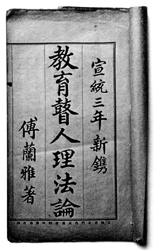 宣統三年新鐫
教育瞽人理法論
傅蘭雅著